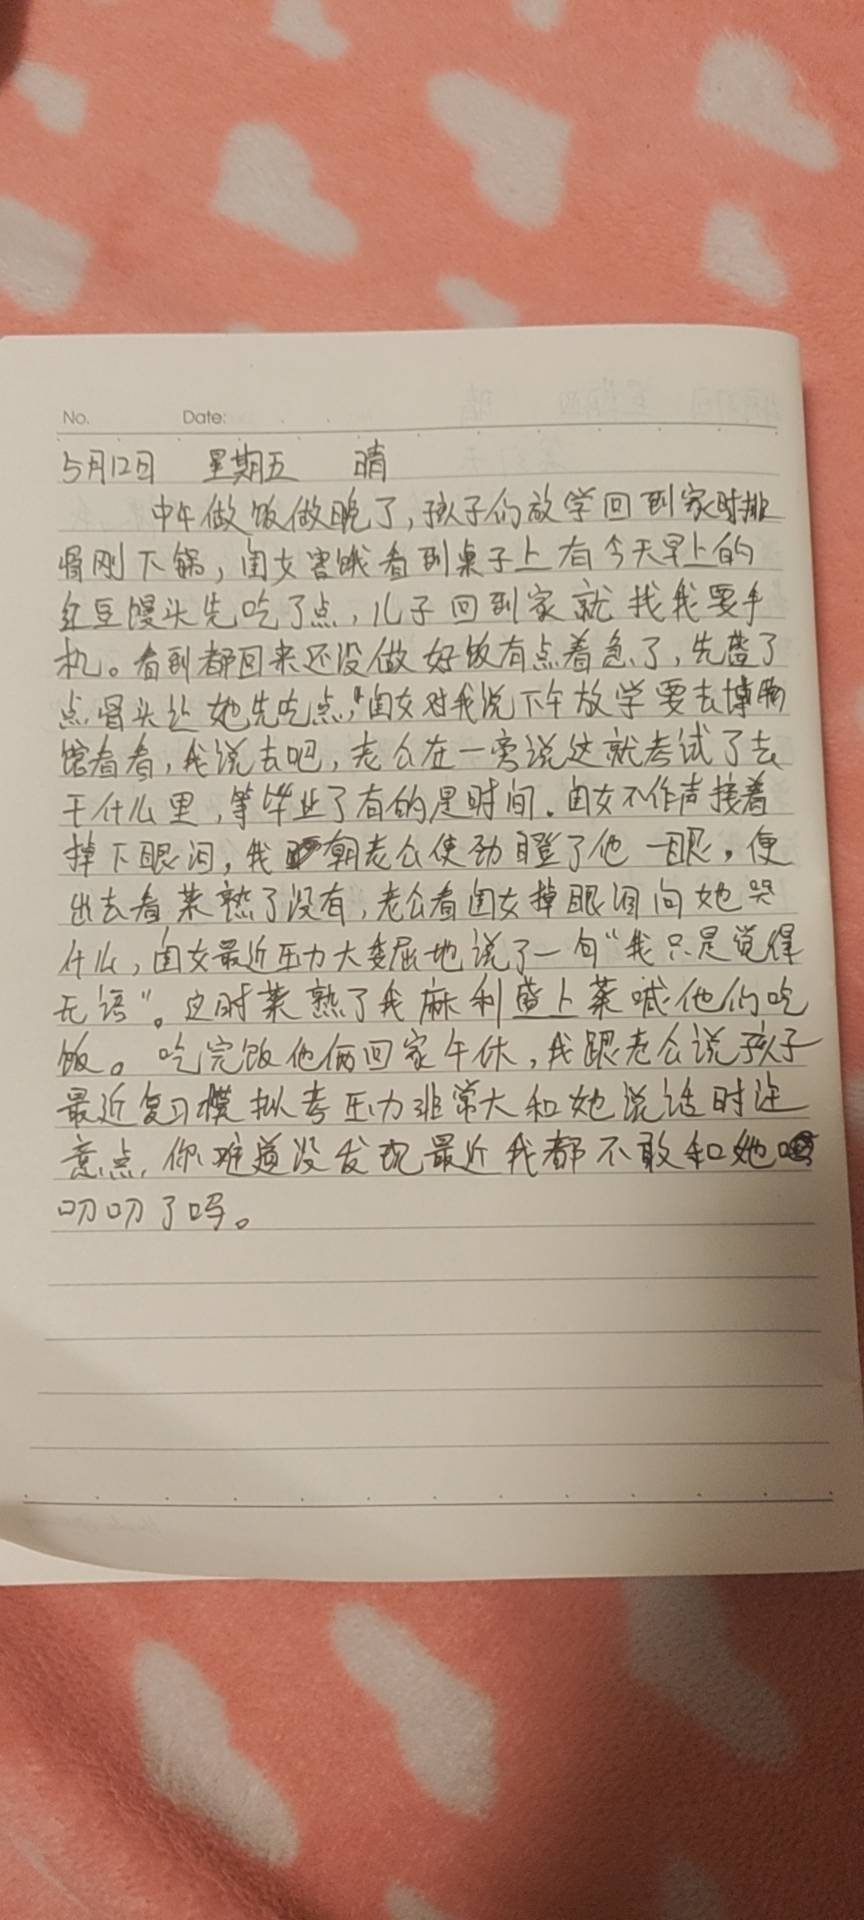 No. Date:
5月12日 星期五 晴
中午做饭做晚了，孩子们放学回到家时排
骨刚下锅，闺女害饿看到桌子上有今天早上的
红豆馒头先吃了点，儿子回到家就找我要手
机。看到都回来还没做好饭有点着急了，先盛了
点骨头让她先吃点，闺女对我说下午放学要去博物
馆看看，我说去吧，老公在一旁说这就考试了去
干什么里，等毕业了有的是时间。闺女不作声接着
掉下眼泪，我朝老公使劲瞪了他一眼，便
出去看菜熟了没有，老公看闺女掉眼泪问她哭
什么，闺女最近压力大委屈地说了一句“我只是觉得
无语”。这时菜熟了我麻利盛上菜喊他们吃
饭。吃完饭他俩回家午休，我跟老公说孩子
最近复习模拟考压力非常大和她说话时注
意点，你难道没发现最近我都不敢和她
叨叨了吗。